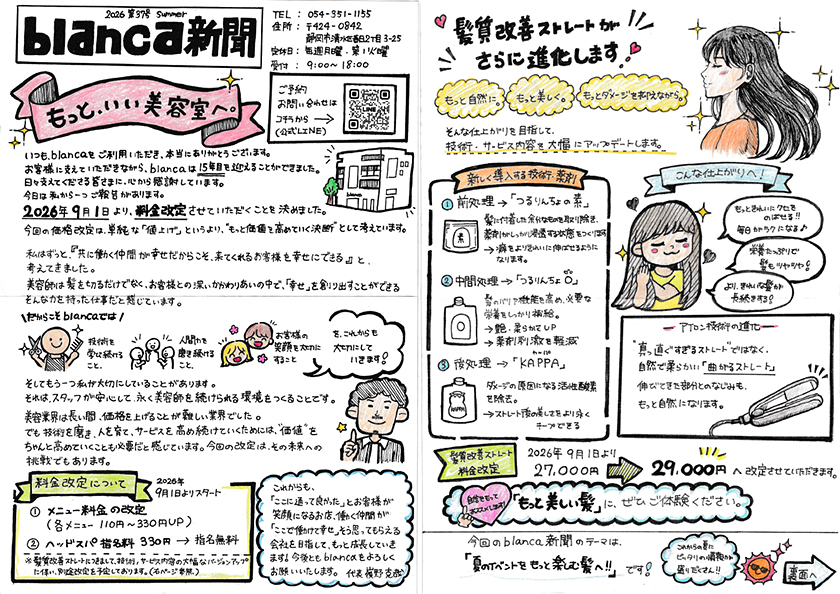 2026 第37号 Summer
blanca新聞
TEL : 054-351-1155
住所 : 〒424-0842
静岡市清水区春日2丁目3-25
定休日 : 毎週月曜・第1火曜
受付 : 9:00〜18:00
もっと、いい美容室へ。
ご予約
お問い合わせは
コチラから
(公式LINE)
LINE
いつも、blancaをご利用いただき、本当にありがとうございます。
お客様に支えていただきながら、blancaは15年目を迎えることができました。
日々支えてくださる皆さまに、心から感謝しています。
今日は私から一つご報告があります。
2026年9月1日より、料金改定させていただくことを決めました。
今回の価格改定は、単純な「値上げ」というより、"もっと価値を高めていく決断"として考えています。
blanca
私はずっと、『共に働く仲間が幸せだからこそ、来てくれるお客様を幸せにできる』と、
考えてきました。
美容師は髪を切るだけでなく、お客様との深いかかわりあいの中で、「幸せ」を創り出すことができる
そんな力を持った仕事だと感じています。
だからこそblancaでは!
技術を
学び続ける
こと、
人間力を
磨き続ける
こと、
お客様の
笑顔を大切に
すること
を、これからも
大切にして
いきます!
そしてもう一つ私が大切にしていることがあります。
それは、スタッフが安心して、永く美容師を続けられる環境をつくることです。
美容業界は長い間、価格を上げることが難しい業界でした。
でも技術を磨き、人を育て、サービスを高め続けていくためには、"価値"を
ちゃんと高めていくことも必要だと感じています。今回の改定は、その未来への
挑戦でもあります。
料金改定について
2026年
9月1日よりスタート
① メニュー料金の改定
(各メニュー 110円〜330円UP)
② ヘッドスパ指名料 330円 → 指名無料
※髪質改善ストレートにつきまして、技術・サービス内容の大幅なバージョンアップ
に伴い、別途改定を予定しております。(右ページ参照)
これからも、
「ここに通って良かった」とお客様が
笑顔になるお店、働く仲間が
「ここで働けて幸せ」そう思ってもらえる
会社を目指して、もっと成長していき
ます。今後ともblancaをよろしく
お願いいたします。
髪質改善ストレートが
さらに進化します!
もっと自然に。
もっと美しく。
もっとダメージを抑えながら。
そんな仕上がりを目指して、
技術・サービス内容を大幅にアップデートします。
新しく導入する技術・薬剤
① 前処理 →「つるりんちょの素」
素
髪に付着した余分なものを取り除き、
薬剤がしっかり浸透する状態をつくります
→ 癖をよりきれいに伸ばせるように
なります。
② 中間処理 →「つるりんちょO」
髪のバリア機能を高め、必要な
栄養をしっかり補給。
→ 艶・柔らかさUP
→ 薬剤刺激を軽減
③ 後処理 →「KAPPA」
KAPPA
ダメージの原因になる活性酸素
を除去。
→ ストレート後の美しさをより永く
キープできる
こんな仕上がりへ!
もっときれいにクセを
のばせる!!
毎日がラクになる♪
栄養たっぷりで
髪もツヤツヤ!
より、きれいな髪が
長続きする!
アイロン技術の進化
"真っ直ぐすぎるストレート"ではなく、
自然で柔らかに「曲がるストレート」
伸びてきた部分とのなじみも、
もっと自然になります。
髪質改善ストレート
料金改定
2026年9月1日より
27,000円 → 29,000円へ改定させていただきます。
自信をもって
オススメします!
「もっと美しい髪」に、ぜひご体験ください。
今回のblanca新聞のテーマは、
「夏のイベントをもっと楽む髪へ!!」です!
これからの夏に
ピッタリの情報が
盛りだくさん!!
裏面へ